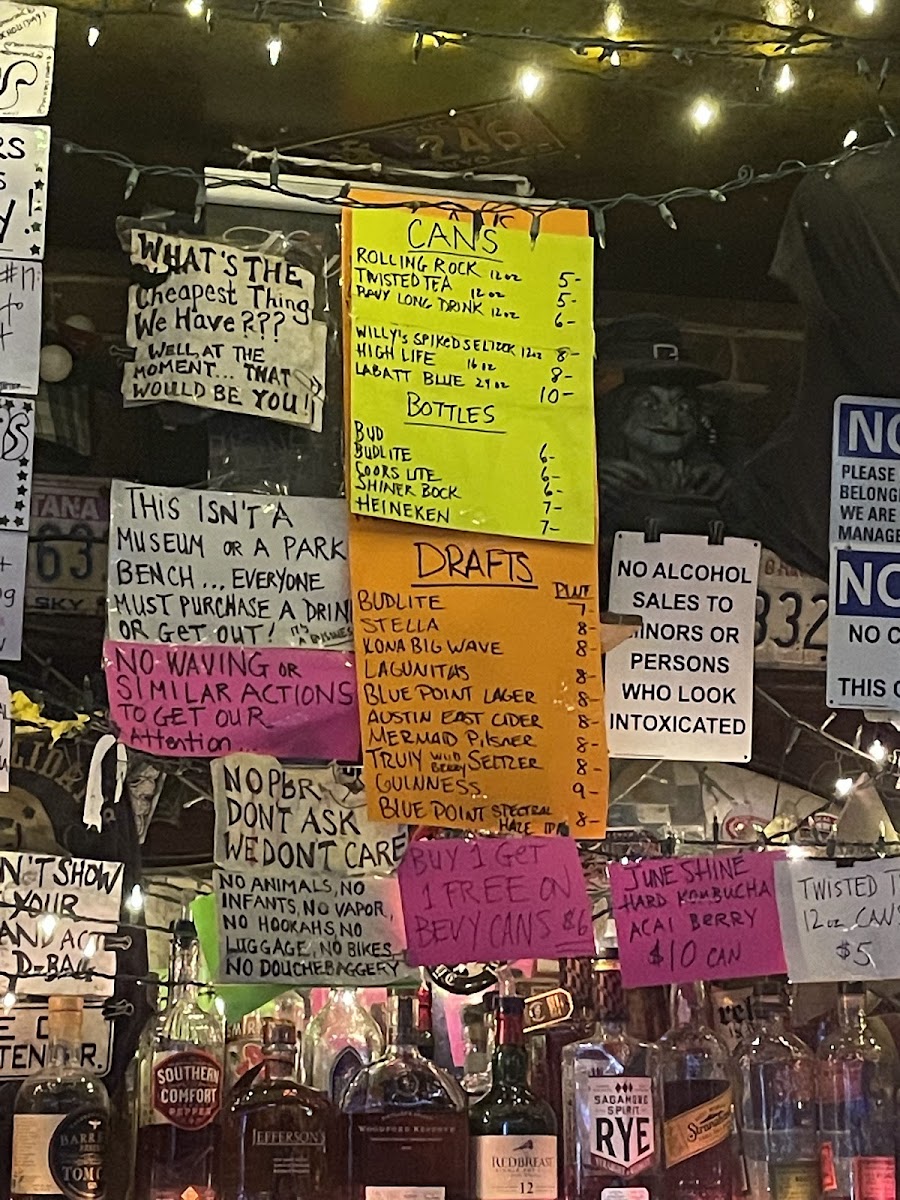 246
WHAT'S THE
Cheapest Thing
We Have???
WELL, AT THE
MOMENT... THAT
WOULD BE YOU!
CANS
ROLLING ROCK 12oz 5-
TWISTED TEA 12oz 5-
BEVY LONG DRINK 12oz 6-
WILLY'S SPIKED SELTZER 12oz 8-
HIGH LIFE 16oz 8-
LABATT BLUE 24oz 10-
BOTTLES
BUD 6-
BUDLITE 6-
COORS LITE 6-
SHINER BOCK 7-
HEINEKEN 7-
DRAFTS
BUDLITE 7-
STELLA 8-
KONA BIG WAVE 8-
LAGUNITAS 8-
BLUE POINT LAGER 8-
AUSTIN EAST CIDER 8-
MERMAID PILSNER 8-
TRULY WILD BERRY SELTZER 8-
GUINNESS 9-
BLUE POINT SPECTRAL HAZE IPA 8-
THIS ISN'T A
MUSEUM OR A PARK
BENCH... EVERYONE
MUST PURCHASE A DRIN
OR GET OUT! IT'S A BUSINESS
NO WAVING OR
SIMILAR ACTIONS
TO GET OUR
Attention...
NO PBR
DONT ASK
WE DONT CARE
NO ANIMALS, NO
INFANTS, NO VAPOR,
NO HOOKAHS, NO
LUGGAGE, NO BIKES
NO DOUCHEBAGGERY
BUY 1 GET
1 FREE ON
BEVY CANS $6
JUNE SHINE
HARD KOMBUCHA
ACAI BERRY
$10 CAN
TWISTED T
12oz CANS
$5
NO ALCOHOL
SALES TO
INORS OR
PERSONS
WHO LOOK
INTOXICATED
NO
PLEASE
BELONG
WE ARE
MANAGE
NO
NO C
THIS
TANA
63
SKY
332
N'T SHOW
YOUR
AND ACT
D-BAG
TENDER
SOUTHERN
COMFORT
PEPPER
JEFFERSON'S
WOODFORD RESERVE
REDBREAST
12
SAGAMORE
SPIRIT
RYE
Stranahan's